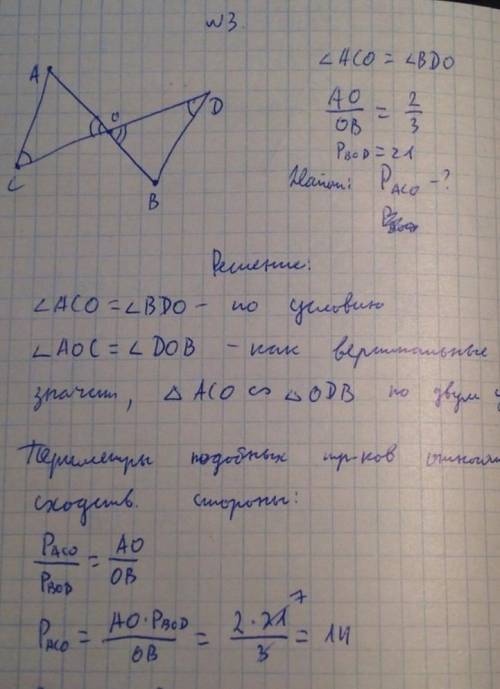 №3.
∠ACO = ∠BDO
AO/OB = 2/3
P_BOD = 21
Найти: P_ACO - ?
A
O
D
C
B
Решение:
∠ACO = ∠BDO – по условию
∠AOC = ∠DOB – как вертикальные
значит, △ACO ∽ △ODB по двум
Периметры подобных тр-ков
сходств. стороны:
P_ACO/P_BOD = AO/OB
P_ACO = AO·P_BOD/OB = 2·21/3 = 14
7